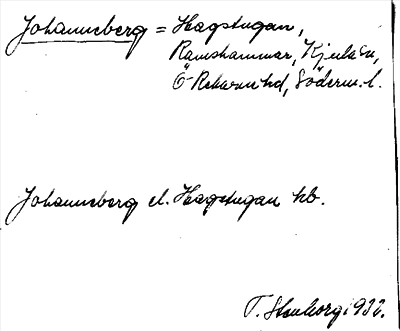 Johanneberg = Hagstugan,
Ramshammar, Kjula sn,
Ö Rekarne hd, Söderm. l.
Johanneberg el. Hagstugan hb.
T. Stenborg 1932.